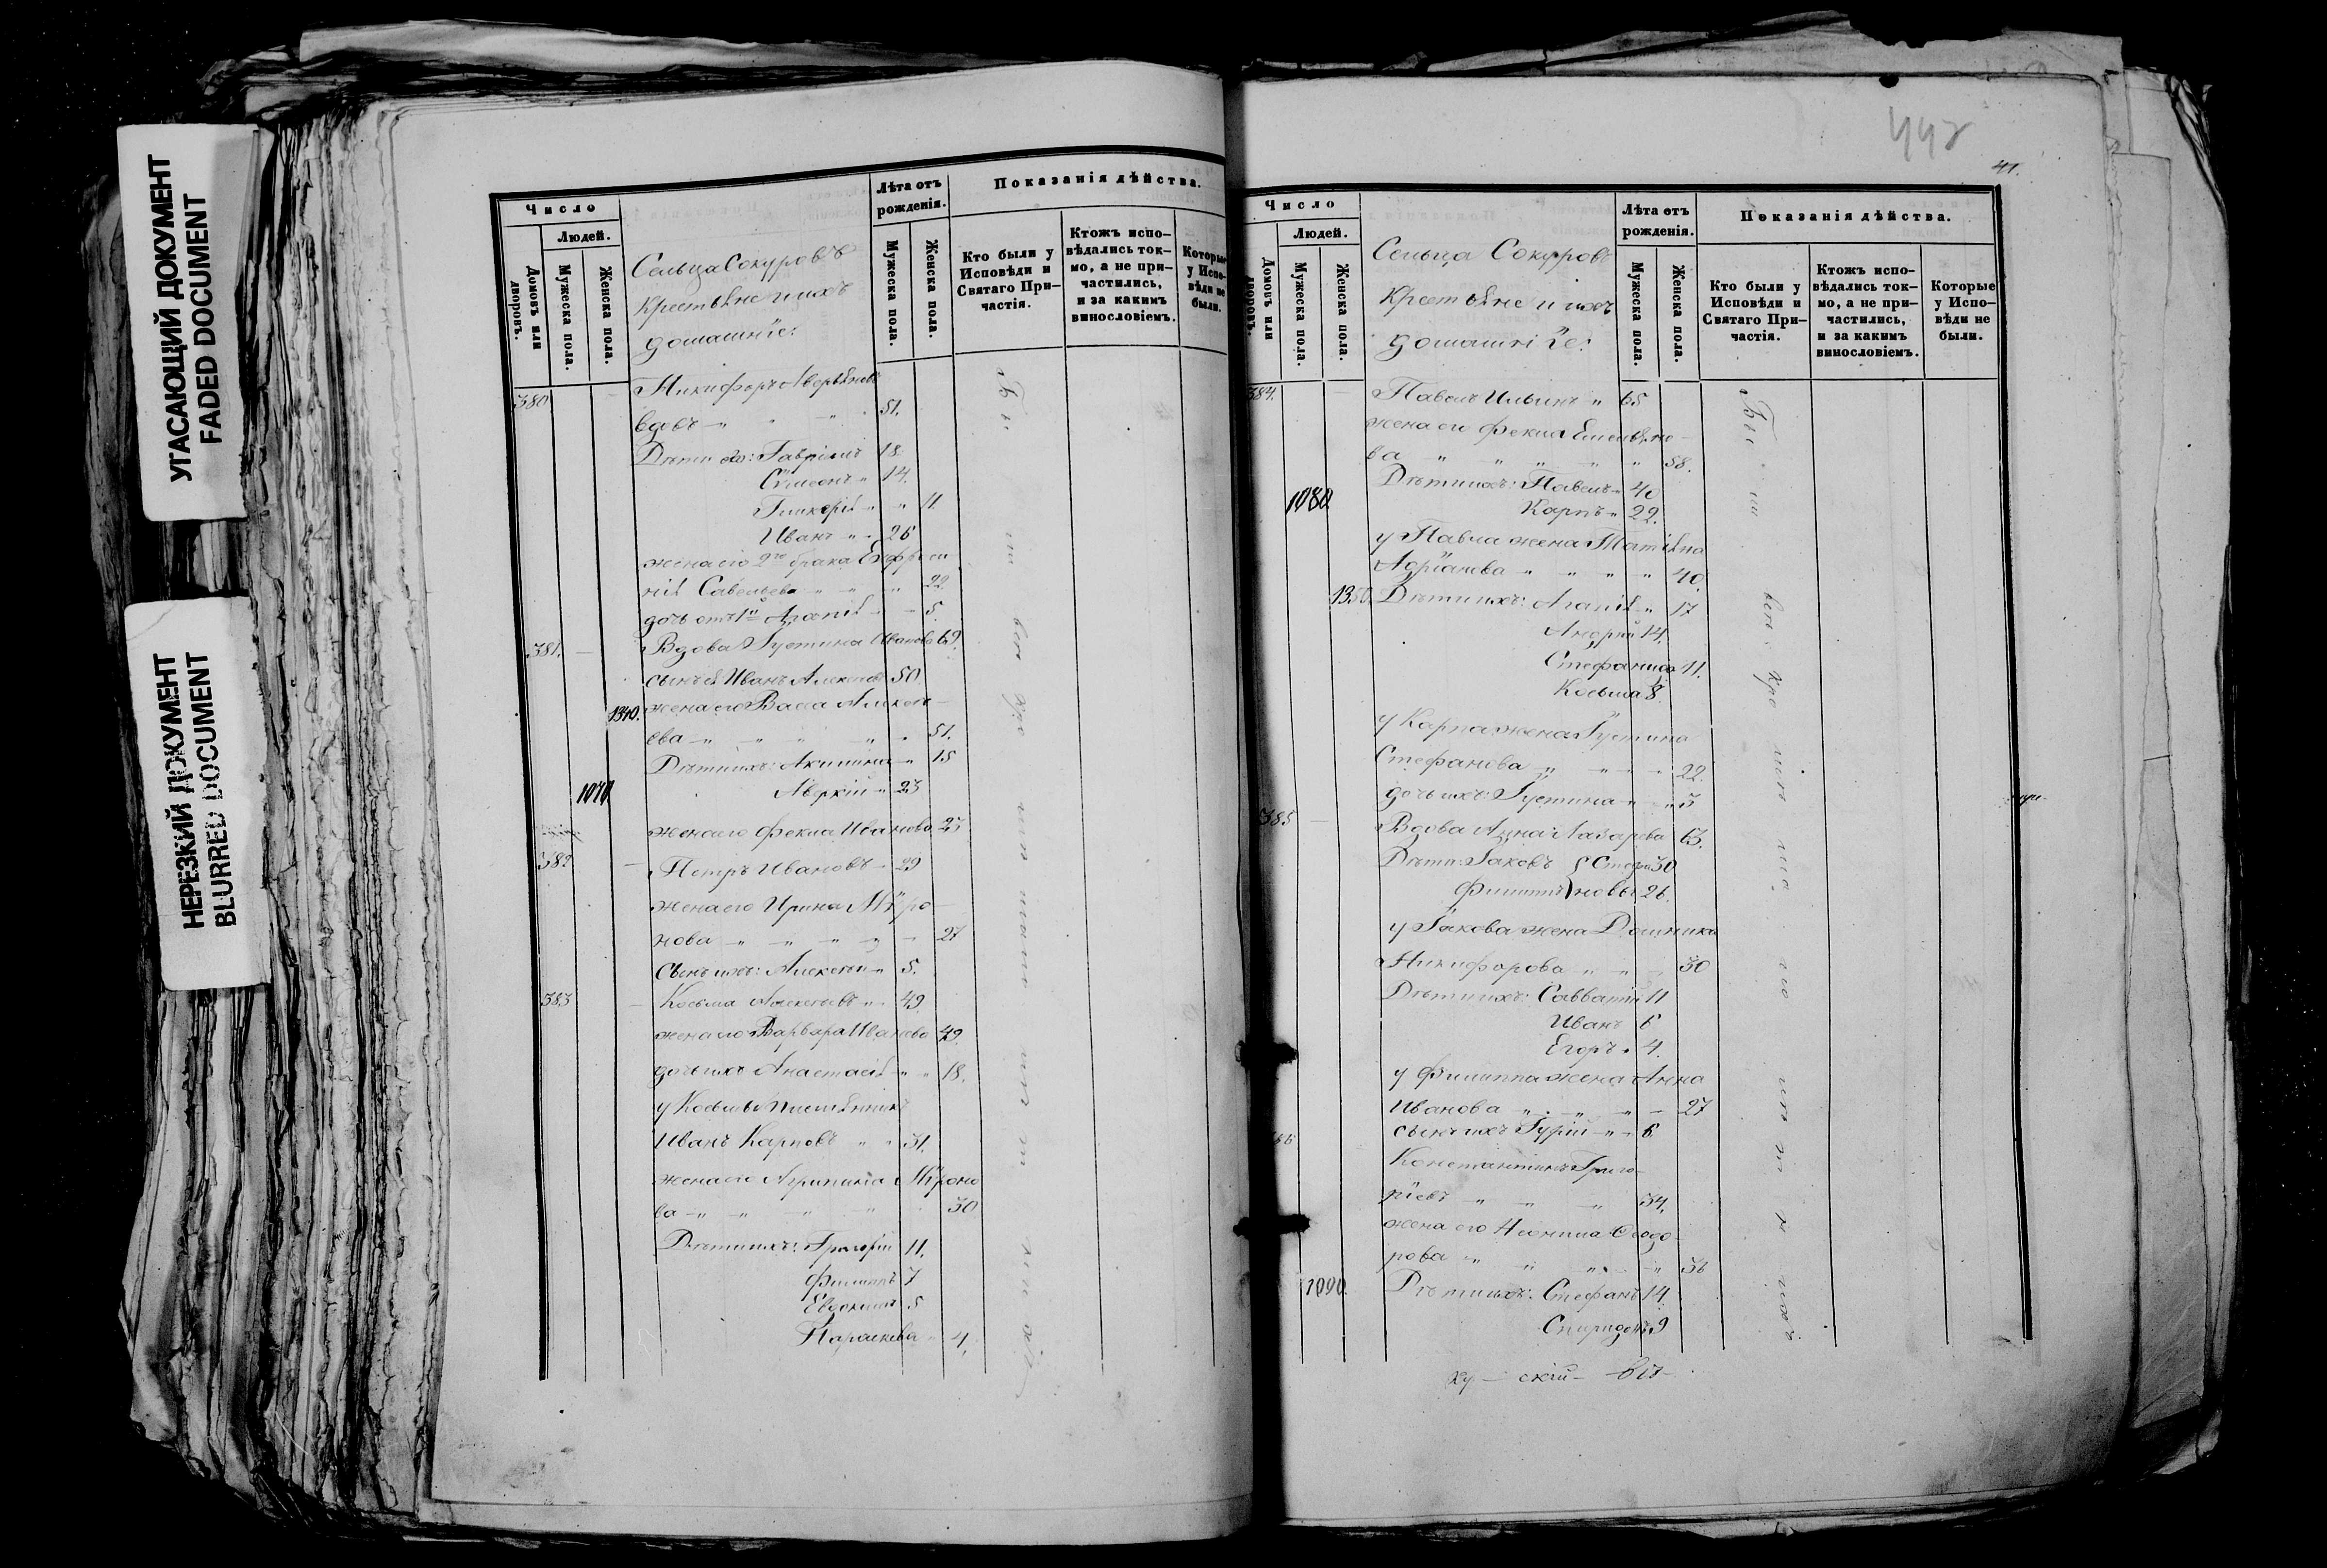 УГАСАЮЩИЙ ДОКУМЕНТ
FADED DOCUMENT
НЕРЕЗКИЙ ДОКУМЕНТ
BLURRED DOCUMENT
Число
Людей.
Домовъ или дворовъ.
Мужеска пола.
Женска пола.
Сельца Сокуровъ
Крестьяне и ихъ
домашніе:
Лѣта отъ рожденія.
Мужеска пола.
Женска пола.
Показанія дѣйства.
Кто были у Исповѣди и Святаго Причастія.
Ктожъ исповѣдались токмо, а не причастились, и за какимъ винословіемъ.
Которые у Исповѣди не были.
380 Никифоръ Аверьяновъ
вдовъ 51.
Дѣти его: Гавріилъ 18
Сѵмеонъ 14.
Гликерія 11.
Иванъ 26
жена его 2го брака Евфроси
нія Савельева 22
дочь отъ 1го Агапія 5.
381. Вдова Іустина Иванова 69.
сынъ ея Иванъ Алексѣевъ 50.
1340. жена его Васса Алексѣ-
ева 51.
Дѣти ихъ: Акилина 15
1070 Аверкій 23
жена его Фекла Иванова 23
382 Петръ Ивановъ 29
жена его Ирина Мѵро-
нова 27
сынъ ихъ: Алексѣй 5.
383 Косьма Алексѣевъ 49
жена его Варвара Иванова 49.
дочь ихъ Анастасія 18.
у Косьмы племянникъ
Иванъ Карповъ 31.
жена его Агрипина Мѵроно
ва 30
Дѣти ихъ: Григорій 11.
Филиппъ 7
Евдокимъ 5
Параскева 4.
442
41.
Число
Людей.
Домовъ или дворовъ.
Мужеска пола.
Женска пола.
Сельца Сокуровъ
Крестьяне и ихъ
домашніе:
Лѣта отъ рожденія.
Мужеска пола.
Женска пола.
Показанія дѣйства.
Кто были у Исповѣди и Святаго Причастія.
Ктожъ исповѣдались токмо, а не причастились, и за какимъ винословіемъ.
Которые у Исповѣди не были.
384. Павелъ Ильинъ 65
жена его Фекла Емельяно-
ва 58.
Дѣти ихъ: Павелъ 40
1080. Карпъ 22.
у Павла жена Татіяна
Адріанова 40
1350. Дѣти ихъ: Агапія 17
Андрей 14.
Стефанида 11.
Косьма 8.
у Карпа жена Іустина
Стефанова 22.
дочь ихъ: Іустина 3
385 Вдова Анна Лазарева 63.
Дѣти: Іаковъ Стефа 30
Филиппъ новы 26.
у Іакова жена Домника
Никифорова 30
Дѣти ихъ: Савватій 11
Иванъ 6
Егоръ 4.
у Филиппа жена Анна
Иванова 27
сынъ ихъ Гурій 6.
Константинъ Григо-
ріевъ 34.
жена его Неонила Ѳеодо
рова 36
1090. Дѣти ихъ: Стефанъ 14.
Спиридонъ 9